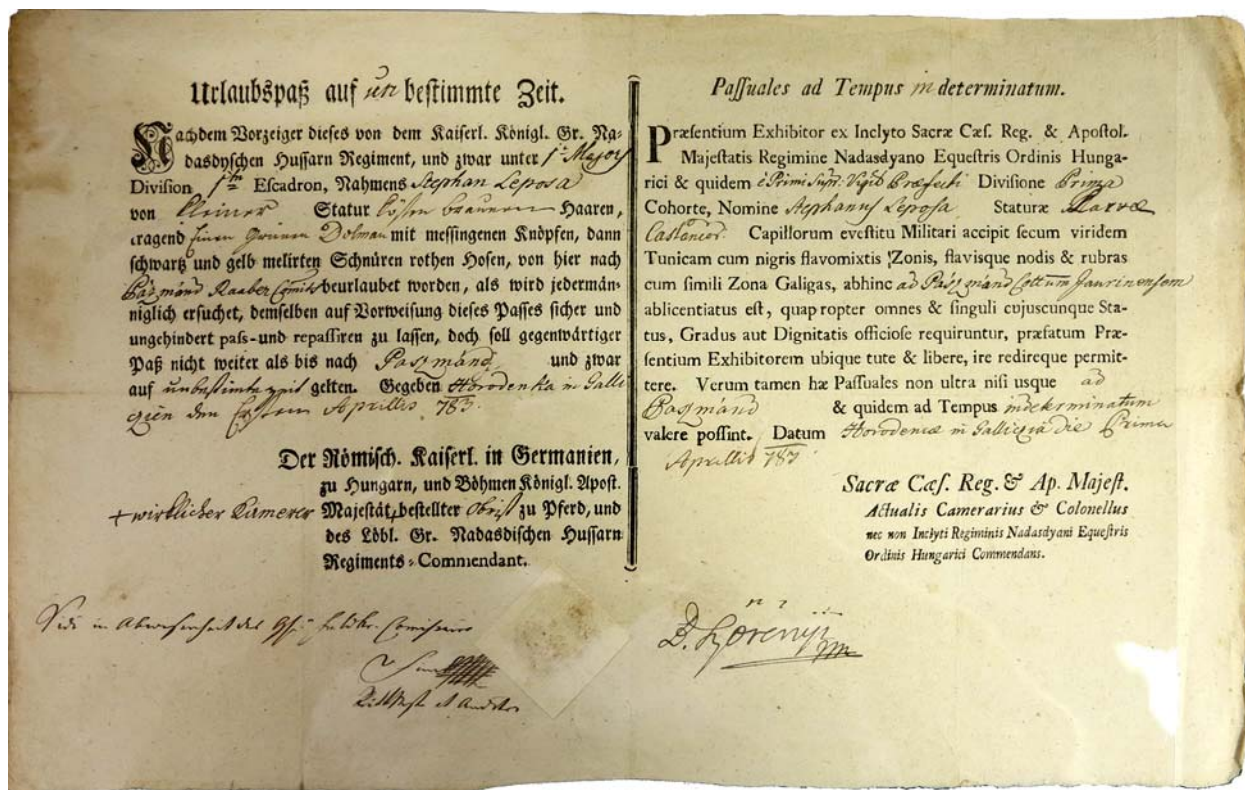 Urlaubspaß auf un bestimmte Zeit.
Nachdem Vorzeiger dieses von dem Kaiserl. Königl. Gr. Na-
dasdyschen Hussarn Regiment, und zwar unter 1t Major
Division 1te Escadron, Nahmens Stephan Leposa
von kleiner Statur braunen Haaren,
tragend Einen Grünen Dolman mit messingenen Knöpfen, dann
schwartz und gelb melirten Schnüren rothen Hosen, von hier nach
Pázmánd Raaber Comit beurlaubet worden, als wird jedermän-
niglich ersuchet, demselben auf Vorweisung dieses Passes sicher und
ungehindert pass-und repassiren zu lassen, doch soll gegenwärtiger
Paß nicht weiter als bis nach Pazmánd und zwar
auf unbestimte zeit gelten. Gegeben Horodenka in Galli
zien den Ersten Aprillis 783.
Der Römisch. Kaiserl. in Germanien,
zu Hungarn, und Böhmen Königl. Apost.
+ wirklicher Kämerer Majestät, bestellter Obrist zu Pferd, und
des Löbl. Gr. Nadasdischen Hussarn
Regiments-Commendant.
Vidi in Abwesenheit des
Passuales ad Tempus in determinatum.
Præsentium Exhibitor ex Inclyto Sacræ Cæs. Reg. & Apostol.
Majestatis Regimine Nadasdyano Equestris Ordinis Hunga-
rici & quidem è Primi Supr. Vigil. Præfecti Divisione Prima
Cohorte, Nomine Stephanus Leposa Staturæ Parvæ
Castaneor. Capillorum evestitu Militari accipit secum viridem
Tunicam cum nigris flavomixtis Zonis, flavisque nodis & rubras
cum simili Zona Galigas, abhinc ad Pázmánd Cottum Jaurinensem
ablicentiatus est, quapropter omnes & singuli cujuscunque Sta-
tus, Gradus aut Dignitatis officiose requiruntur, præfatum Præ-
sentium Exhibitorem ubique tute & libere, ire redireque permit-
tere. Verum tamen hæ Passuales non ultra nisi usque ad
Pazmánd & quidem ad Tempus indeterminatum
valere possint. Datum Horodencæ in Gallicia die Prima
Aprillis 783.
Sacræ Cæs. Reg. & Ap. Majest.
Actualis Camerarius & Colonellus
nec non Inclyti Regiminis Nadasdyani Equestris
Ordinis Hungarici Commendans.